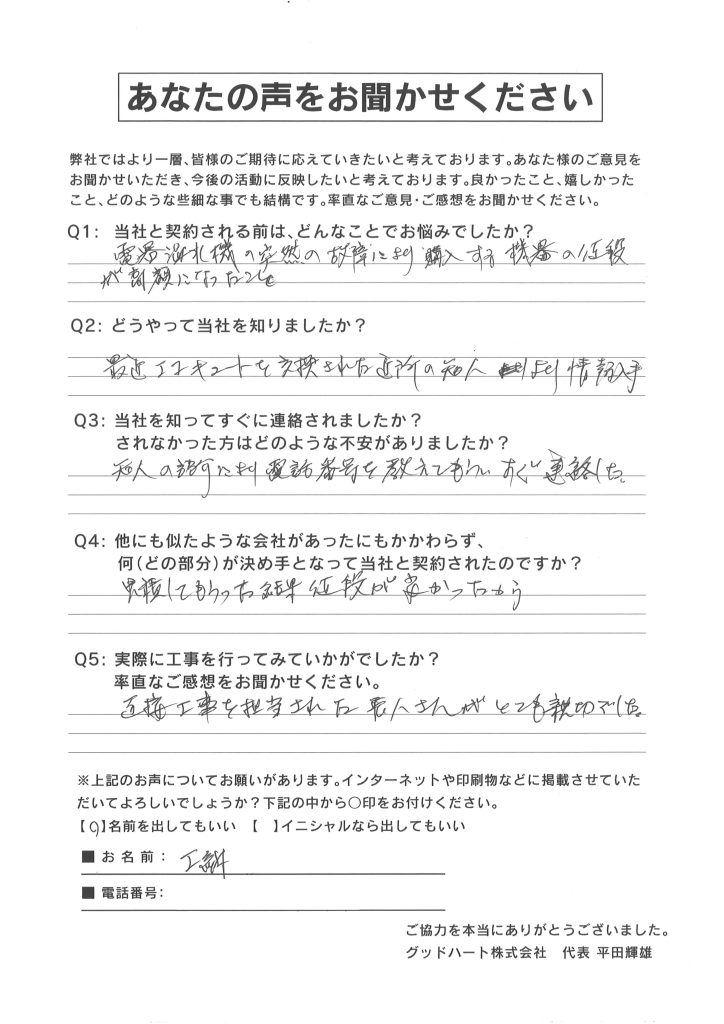 あなたの声をお聞かせください
弊社ではより一層、皆様のご期待に応えていきたいと考えております。あなた様のご意見を
お聞かせいただき、今後の活動に反映したいと考えております。良かったこと、嬉しかった
こと、どのような些細な事でも結構です。率直なご意見・ご感想をお聞かせください。
Q1: 当社と契約される前は、どんなことでお悩みでしたか?
機の突然の故障により購入する機器の値段
が高額になったこと
Q2: どうやって当社を知りましたか?
最近エコキュートを交換された近所の知人より情報入手
Q3: 当社を知ってすぐに連絡されましたか?
されなかった方はどのような不安がありましたか?
知人の により電話番号を教えてもらいすぐ連絡した。
Q4: 他にも似たような会社があったにもかかわらず、
何(どの部分)が決め手となって当社と契約されたのですか?
見積してもらった結果値段が 
Q5: 実際に工事を行ってみていかがでしたか?
率直なご感想をお聞かせください。
直接工事を担当された さんがとても親切でした。
※上記のお声についてお願いがあります。インターネットや印刷物などに掲載させていた
だいてよろしいでしょうか?下記の中から○印をお付けください。
【○】名前を出してもいい 【 】イニシャルなら出してもいい
■ お名前: 工藤
■ 電話番号:
ご協力を本当にありがとうございました。
グッドハート株式会社 代表 平田輝雄